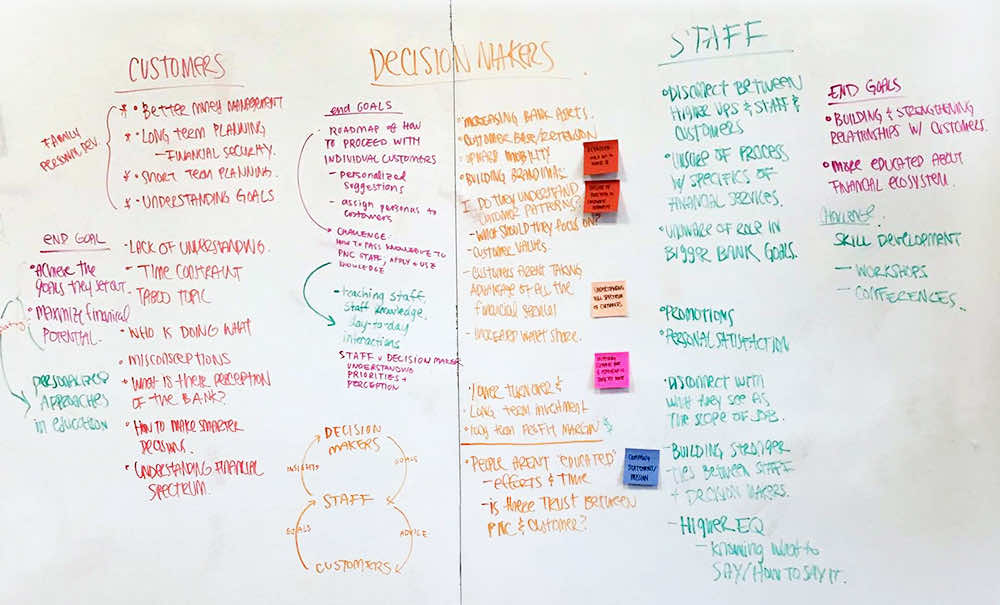 CUSTOMERS
FAMILY
PERSONAL DEV.
* • BETTER MONEY MANAGEMENT
* • LONG TERM PLANNING
- FINANCIAL SECURITY.
* • SHORT TERM PLANNING.
* - UNDERSTANDING GOALS
END GOAL
• ACHIEVE THE
GOALS THEY SET OUT.
• MAXIMIZE FINANCIAL
POTENTIAL.
PERSONALIZED
APPROACHES
in EDUCATION
- LACK OF UNDERSTANDING.
- TIME CONSTRAINT
- TABOO TOPIC
- WHO IS DOING WHAT
• MISCONCEPTIONS
• WHAT IS THEIR PERCEPTION
OF THE BANK?
• HOW TO MAKE SMARTER
DECISIONS.
• UNDERSTANDING FINANCIAL
SPECTRUM.
DECISION MAKERS
END GOALS
• ROADMAP OF HOW
TO PROCEED WITH
INDIVIDUAL CUSTOMERS
- personalized
suggestions
- assign personas to
customers
• CHALLENGE:
HOW TO PASS KNOWLEDGE TO
PNC STAFF; APPLY + USE
KNOWLEDGE
- teaching staff,
staff knowledge.
day-to-day
interactions
STAFF v DECISION MAKER
UNDERSTANDING
PRIORITIES +
PERCEPTION
DECISION
MAKERS
INSIGHTS
GOALS
STAFF
GOALS
ADVICE
CUSTOMERS
• INCREASING BANK ASSETS.
• CUSTOMER BASE/RETENSION
• UPWARD MOBILITY
• BUILDING BRAND
DO THEY UNDERSTAND
CUSTOMER PATTERNS?
- WHAT SHOULD THEY FOCUS ON?
- CUSTOMER VALUES.
- CUSTOMERS ARENT TAKING
ADVANTAGE OF ALL THE
FINANCIAL SERVICES
- INCREASED WALLET SHARE.
UNDERSTANDING
FULL SPECTRUM
OF CUSTOMERS
• LOWER TURNOVER &
• LONG TERM INVESTMENT
• LONG TERM PROFIT MARGIN $
• PEOPLE ARENT "EDUCATED"
- EFFORTS & TIME
- IS THERE TRUST BETWEEN
PNC & CUSTOMER?
COMPANY
STATEMENT/
MISSION
STAFF
• DISCONNECT BETWEEN
HIGHER UPS & STAFF &
CUSTOMERS
• UNSURE OF PROCESS
W/ SPECIFICS OF
FINANCIAL SERVICES.
• UNAWARE OF ROLE IN
BIGGER BANK GOALS.
• PROMOTIONS
• PERSONAL SATISFACTION
• DISCONNECT WITH
WHAT THEY SEE AS
THE SCOPE OF JOB.
- BUILDING STRONGER
TIES BETWEEN STAFF
+ DECISION MAKERS.
- HIGHER EQ
- KNOWING WHAT TO
SAY/HOW TO SAY IT.
END GOALS
• BUILDING & STRENGTHENING
RELATIONSHIPS W/ CUSTOMERS.
• MORE EDUCATED ABOUT
FINANCIAL ECOSYSTEM.
CHALLENGE:
SKILL DEVELOPMENT
- WORKSHOPS
- CONFERENCES.